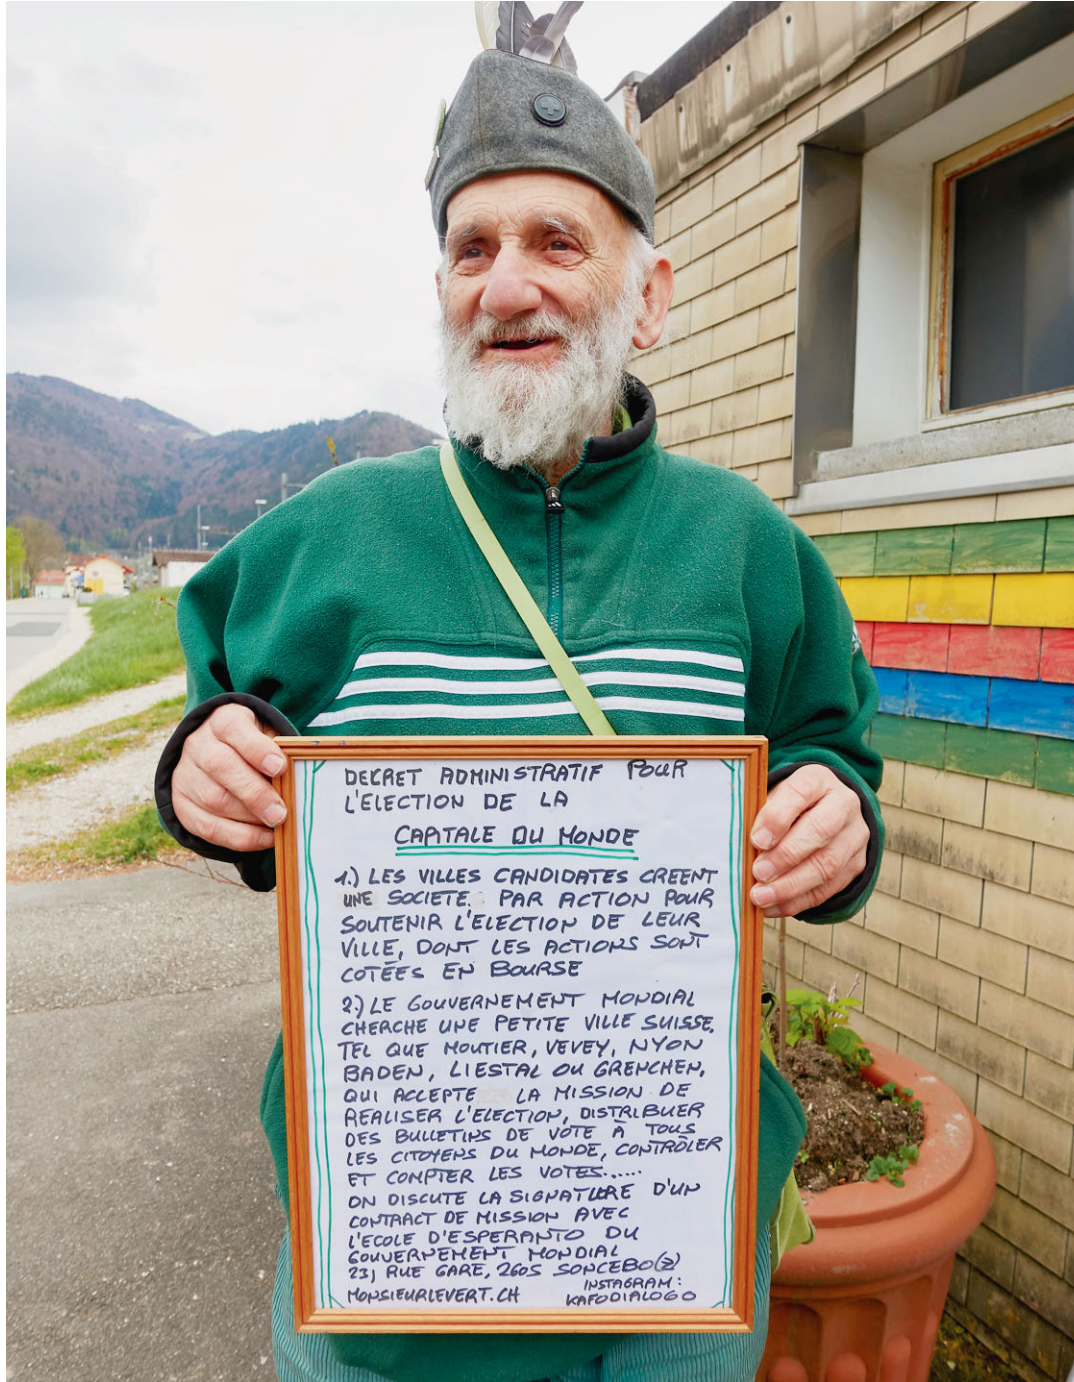 DECRET ADMINISTRATIF POUR
L'ELECTION DE LA
CAPITALE DU MONDE
1.) LES VILLES CANDIDATES CREENT
UNE SOCIETE PAR ACTION POUR
SOUTENIR L'ELECTION DE LEUR
VILLE, DONT LES ACTIONS SONT
COTÉES EN BOURSE
2.) LE GOUVERNEMENT MONDIAL
CHERCHE UNE PETITE VILLE SUISSE,
TEL QUE MOUTIER, VEVEY, NYON
BADEN, LIESTAL OU GRENCHEN,
QUI ACCEPTE LA MISSION DE
REALISER L'ELECTION, DISTRIBUER
DES BULLETINS DE VOTE À TOUS
LES CITOYENS DU MONDE, CONTRÔLER
ET COMPTER LES VOTES.....
ON DISCUTE LA SIGNATURE D'UN
CONTRACT DE MISSION AVEC
L'ECOLE D'ESPERANTO DU
GOUVERNEMENT MONDIAL
23, RUE GARE, 2605 SONCEBO(Z)
MONSIEURLEVERT.CH INSTAGRAM:
KAFODIALOGO